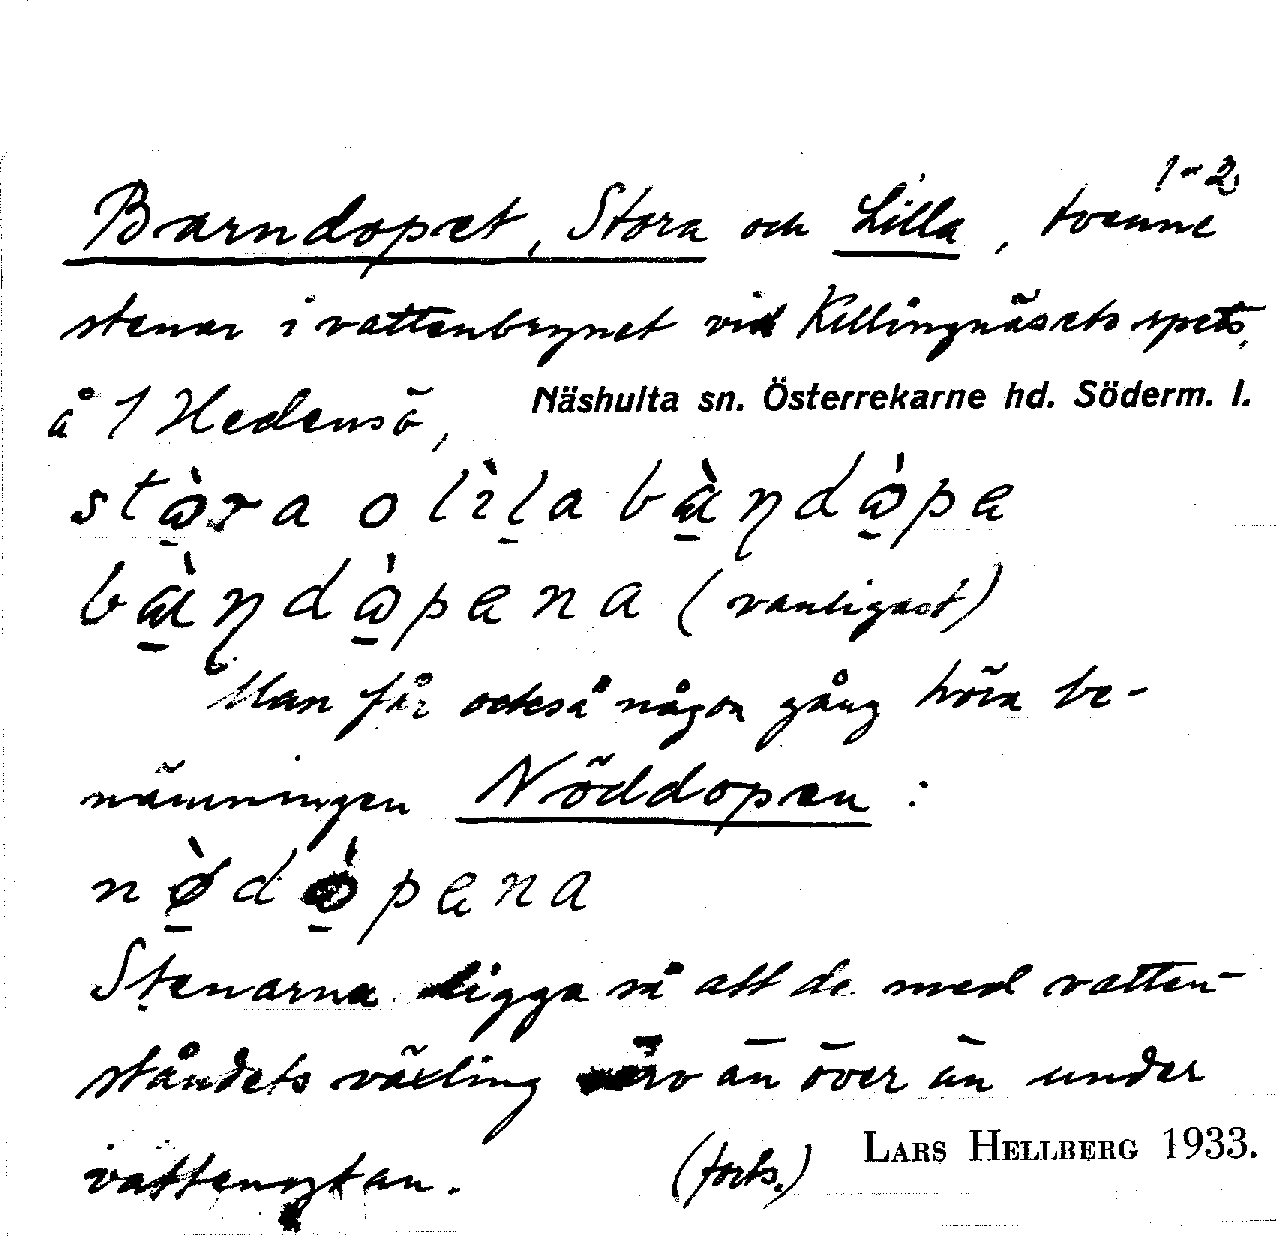 1-2
Barndopet, Stora och Lilla, tvenne
stenar i vattenbrynet vid Killingnäsets spets,
å 1 Hedensö, Näshulta sn. Österrekarne hd. Söderm. l.
stɷ̀ra o lìla bɑ̀ɳdɷ̀pe
bɑ̀ɳdɷ̀pena (vanligast)
Man får också någon gång höra be-
nämningen Nöddopen :
nø̀dɷ̀pena
Stenarna ligga så att de med vatten-
ståndets växling än över än under
vattenytan. (forts.) LARS HELLBERG 1933.